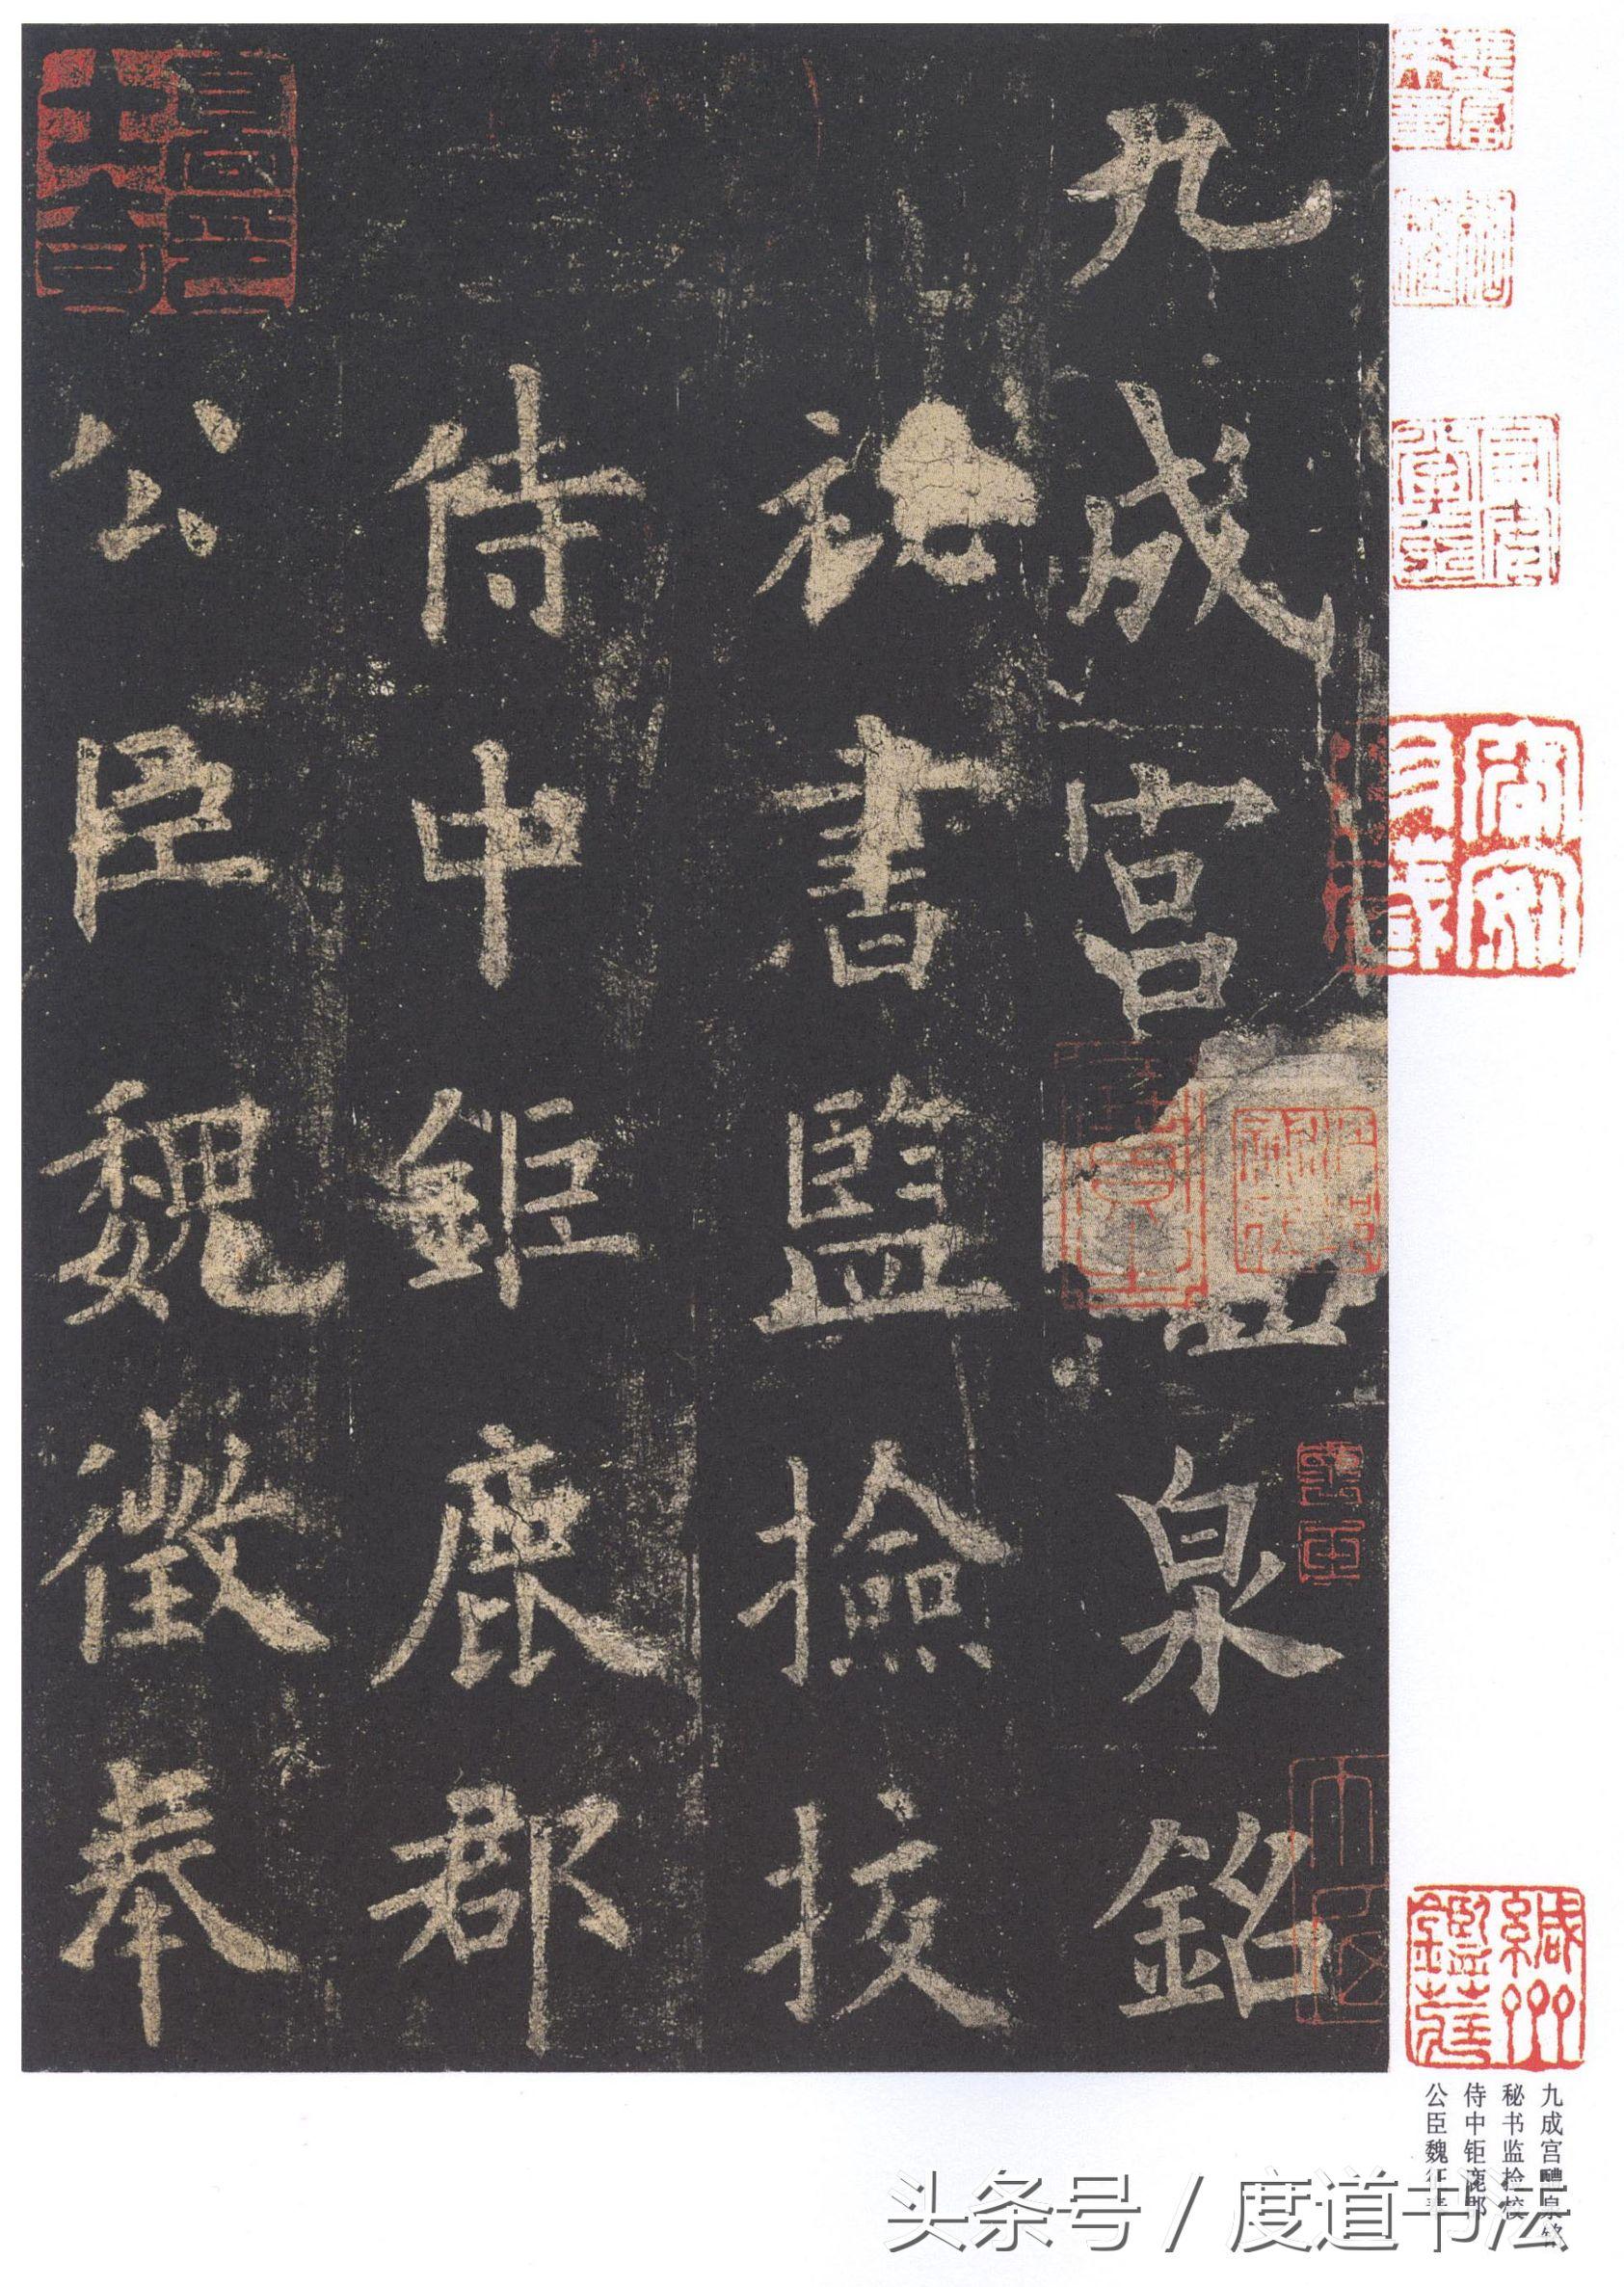 九成宮醴泉銘
秘書監撿挍
侍中鉅鹿郡
公臣魏徵奉
九成宫醴泉铭
秘书监捡校
侍中钜鹿郡
公臣魏征奉
头条号 / 度道书法